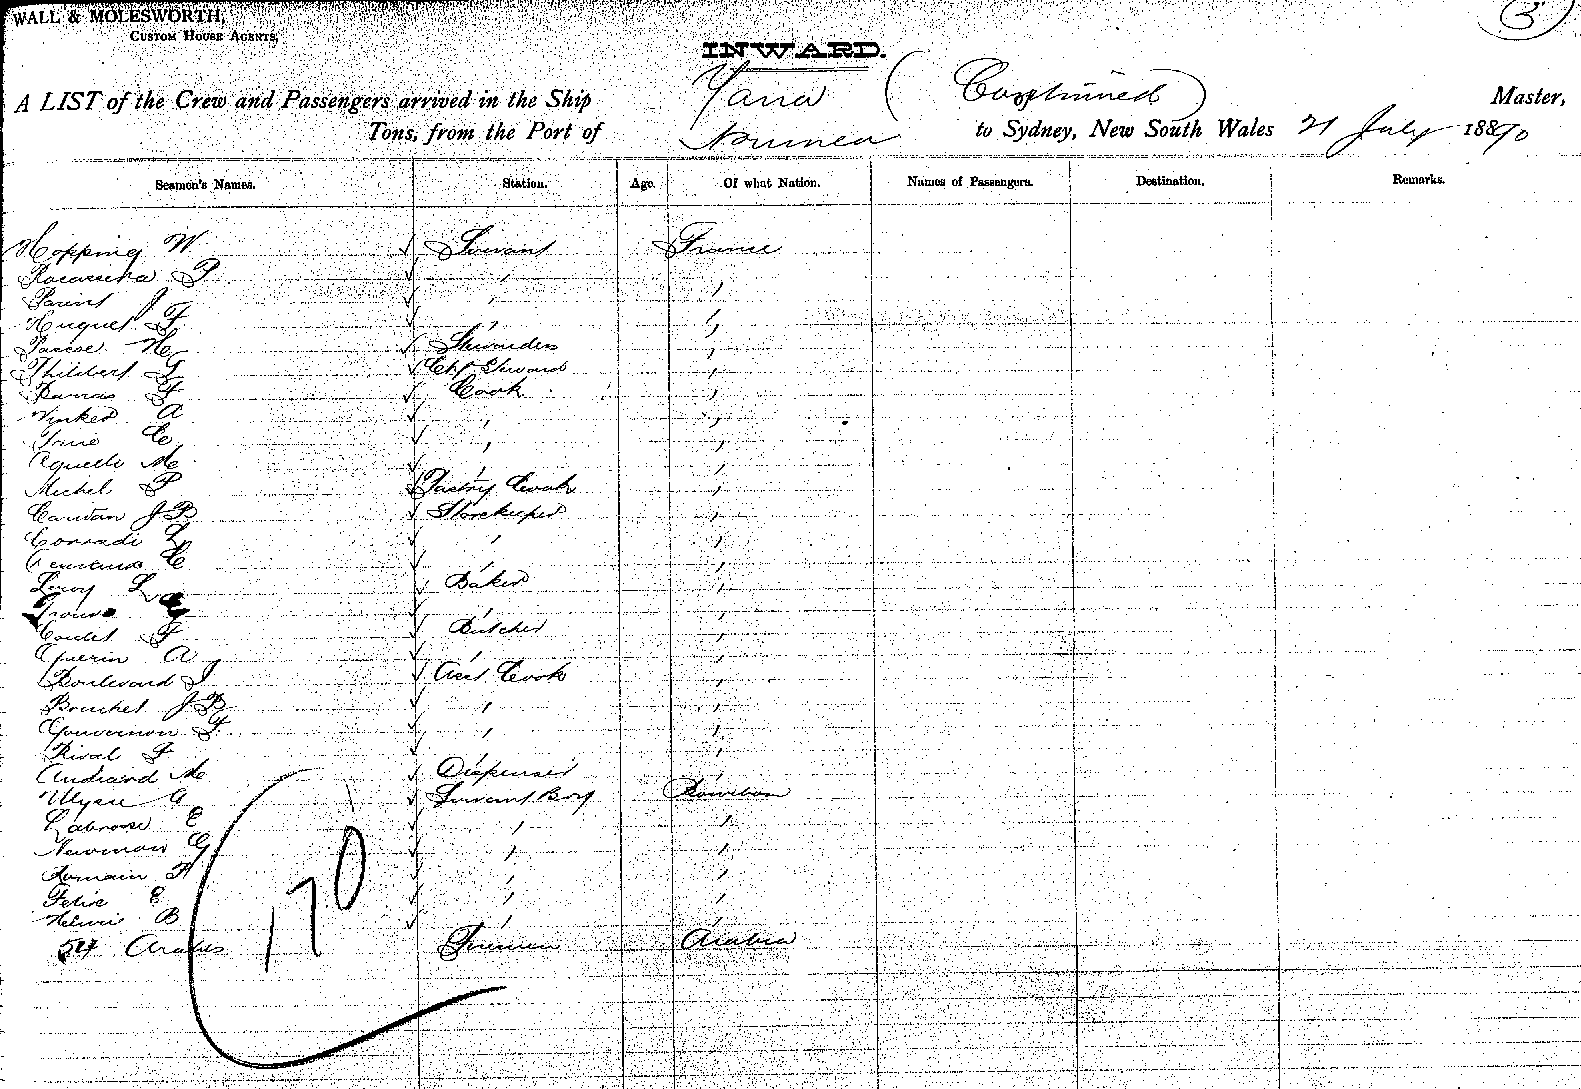 WALL & MOLESWORTH,
CUSTOM HOUSE AGENTS,
3
INWARD.
A LIST of the Crew and Passengers arrived in the Ship Yarra (Continued) Master,
Tons, from the Port of Noumea to Sydney, New South Wales 21 July 1890
Seamen's Names. Station. Age. Of what Nation. Names of Passengers. Destination. Remarks.
Hopping W Servant France
P " "
Parent J " "
Huguet F " "
H "
Philibert Chf Steward "
F Cook "
A " "
" "
M " "
Michel P Pastry Cook "
Cauvan J B Storekeeper "
Conradi L " "
" "
Leroy L Baker "
" "
Coulet F Butcher "
Guerin A " "
Boulevard J Asst Cook "
Bouchet J B " "
Gouvernon F " "
Rival F " "
Andrand M Dispenser "
Ulysse A Servant Boy Bourbon
Labrosse E " "
Newman G " "
Romain P " "
Felix E " "
B " "
54 Arabes Firemen Arabia
170